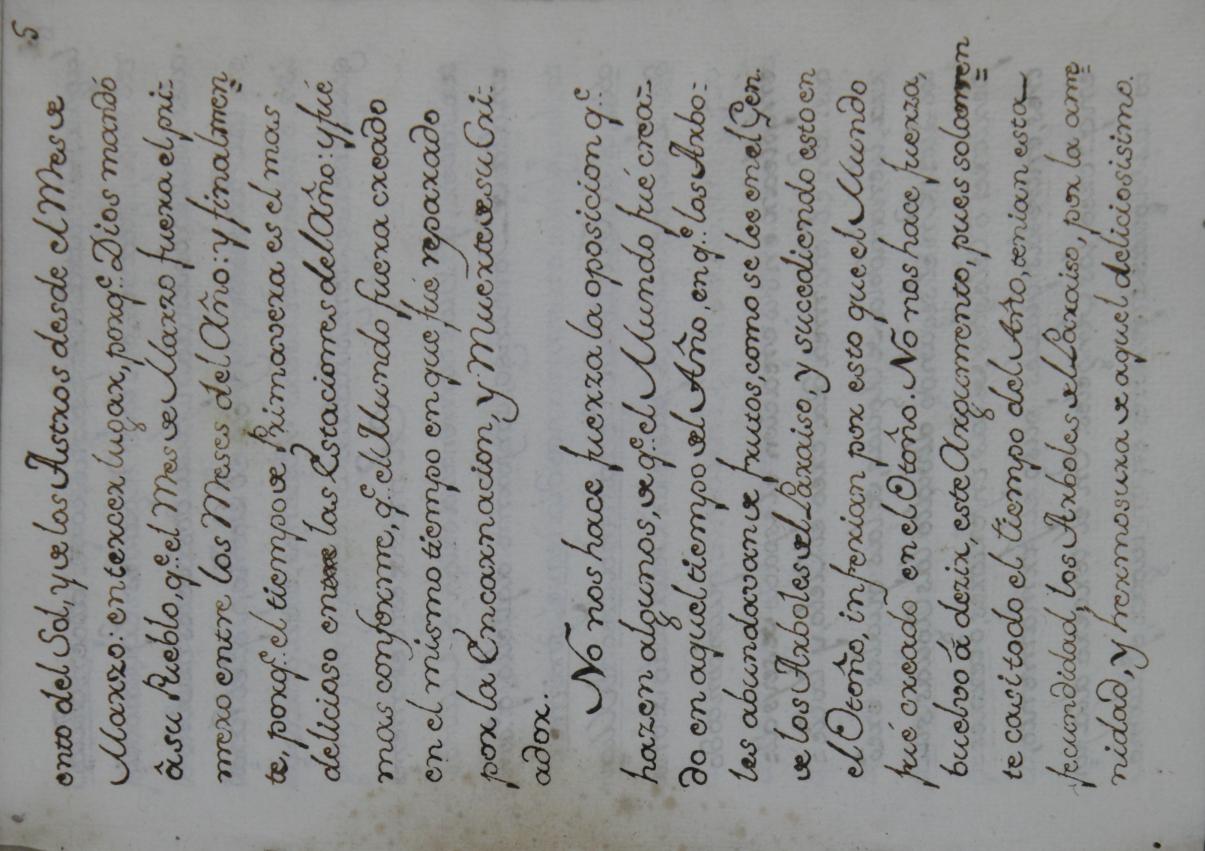 5
ento del Sol, y de los Astros desde el Mes de
Marzo: en tercer lugar, porq.e Dios mandó
â su Pueblo, q.e el Mes de Marzo fuera el pri=
mero entre los Meses del Año: y finalmen=
te, porq.e el tiempo de Primavera es el mas
delicioso entre las Estaciones del Año: y fué
mas conforme, q.e el Mundo fuera creado
en el mismo tiempo en que fué reparado
por la Encarnacion, y Muerte de su Cri=
ador.
No nos hace fuerza la oposicion q.e
hazen algunos, de q.e el Mundo fué crea=
do en aquel tiempo del Año, en q.e los Arbo=
les abundavan de frutos, como se lee en el Gen.
de los Arboles del Paraiso, y succediendo esto en
el Otoño, inferian por esto que el Mundo
fué creado en el Otoño. No nos hace fuerza,
buelvo á decir, este Argumento, pues solamen=
te casi todo el tiempo del Año, tenian esta
fecundidad, los Arboles del Paraiso, por la ame=
nidad, y hermosura de aquel deliciosisimo.